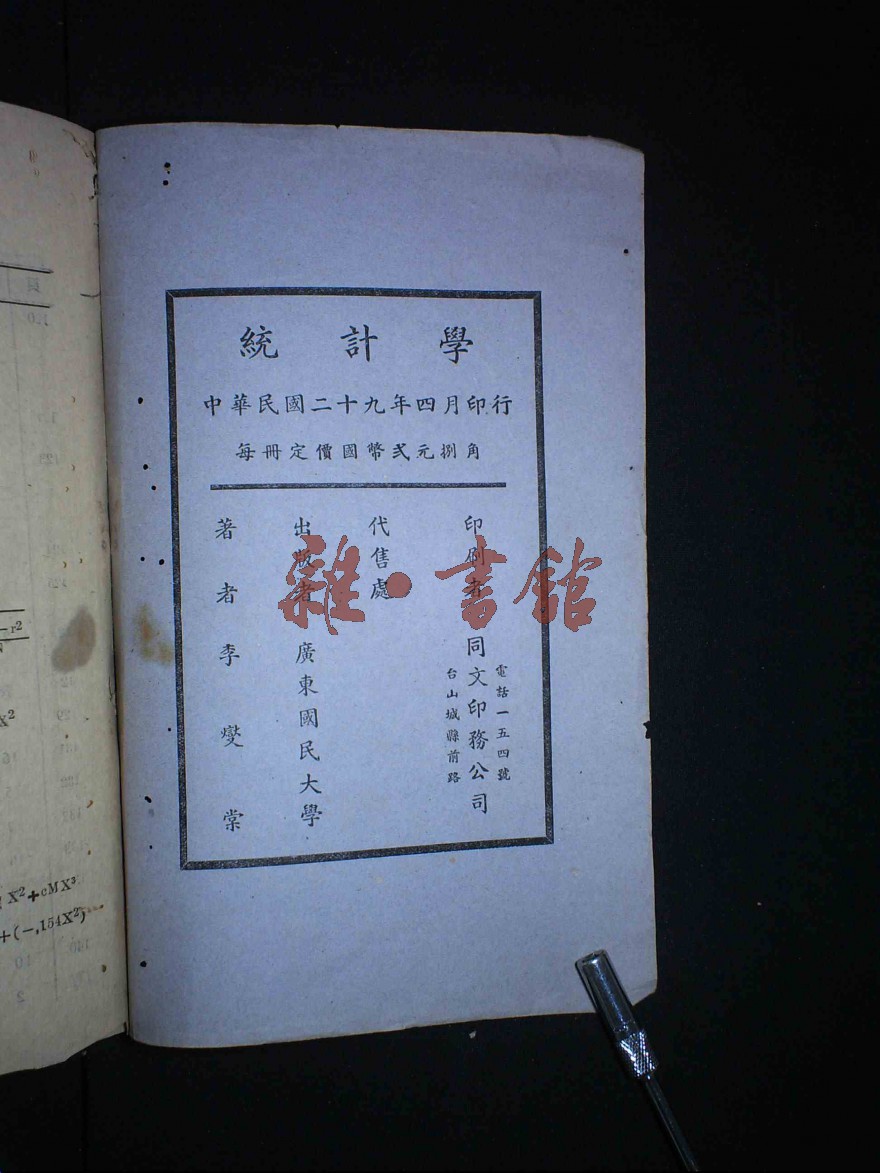 統計學
中華民國二十九年四月印行
每冊定價國幣弍元捌角
著者李燮棠
出版者廣東國民大學
代售處
印刷者同文印務公司
電話一五四號
台山城縣前路
雜·書館
X²+cMX³
+(−,154X²)